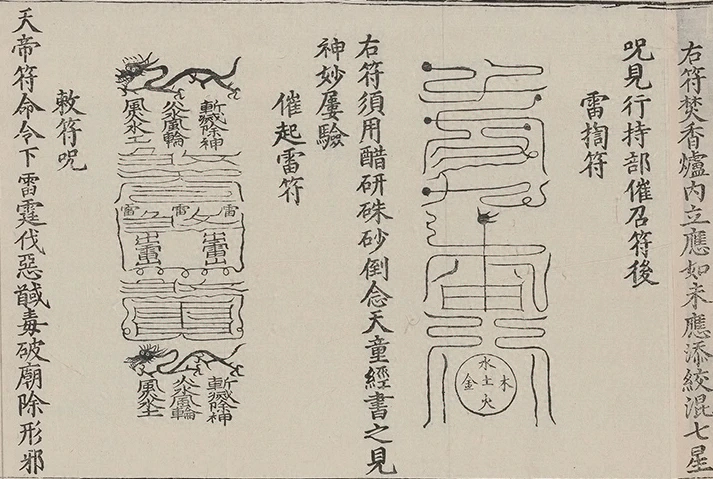 右符焚香爐內立應如未應添絞混七星
咒見行持部催召符後
雷搯符
水
金土木
火
右符須用醋研硃砂倒念天童經書之見
神妙屢驗
催起雷符
斬滅除神
風輪
雷
雷
雷
斬滅除神
風輪
敕符咒
天帝符命令下雷霆伐惡馘毒破廟除形邪